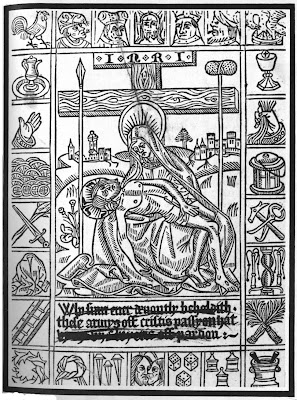 I · N · R · I
Who sum euer deuoutly beholdith
these armys off cristis passyon hat
off pardon :~